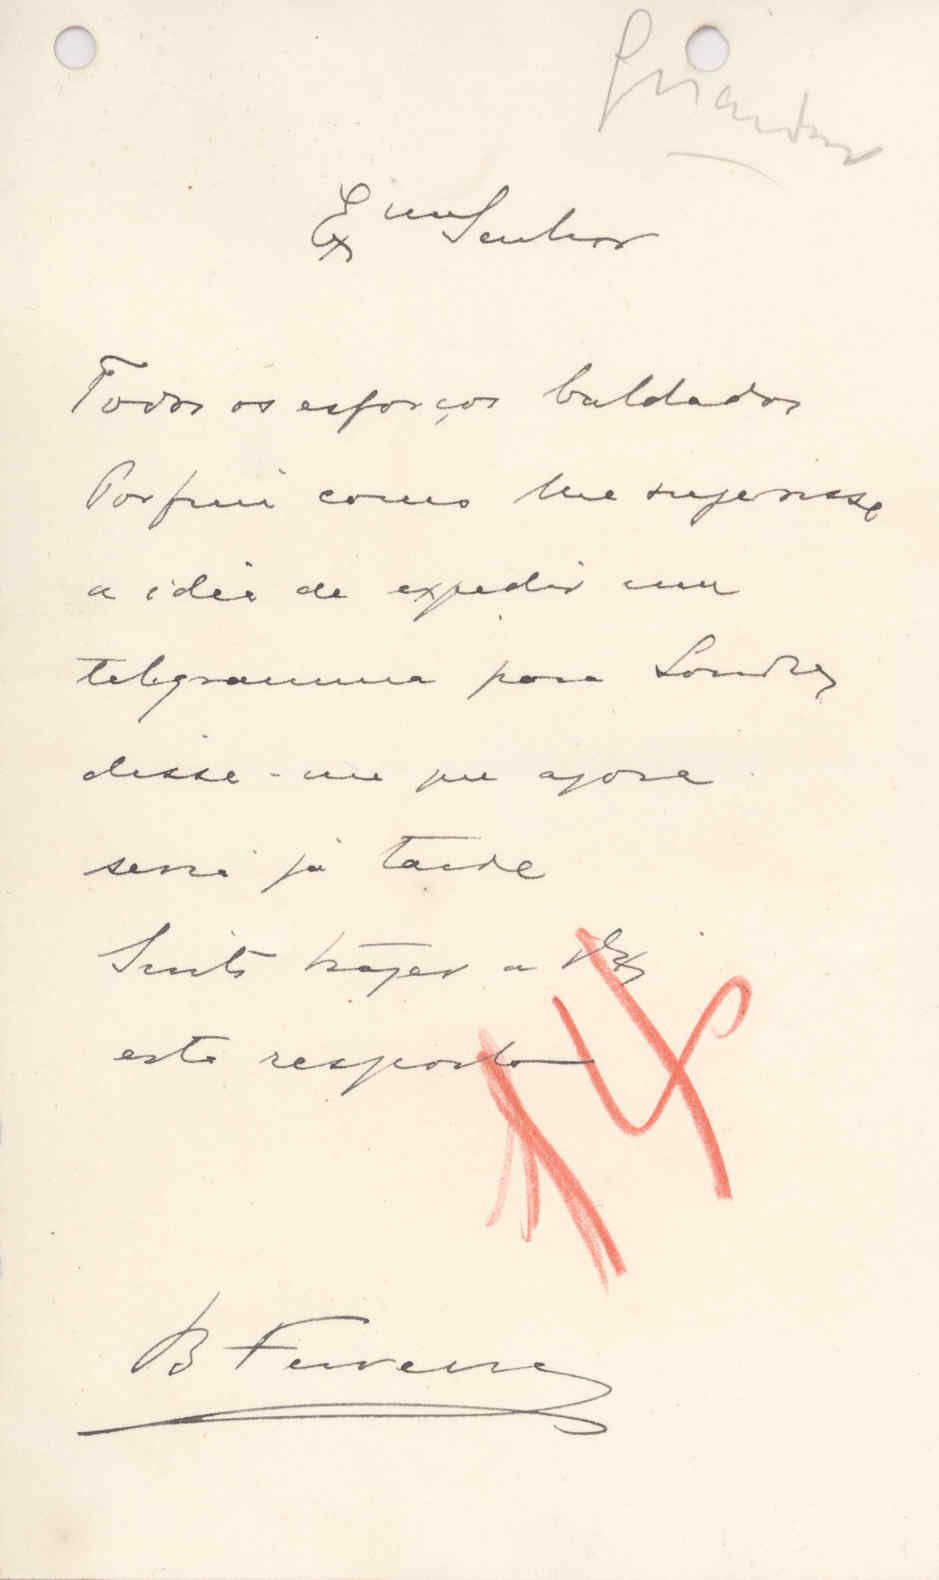 Exmo Senhor
Todos os esforços baldados
Por fim como lhe sugerisse
a idéa de expedir um
telegramma para Londres
disse-me que agora
seria já tarde
Sinto trazer a V. Ex.
esta resposta
14
B Ferreira